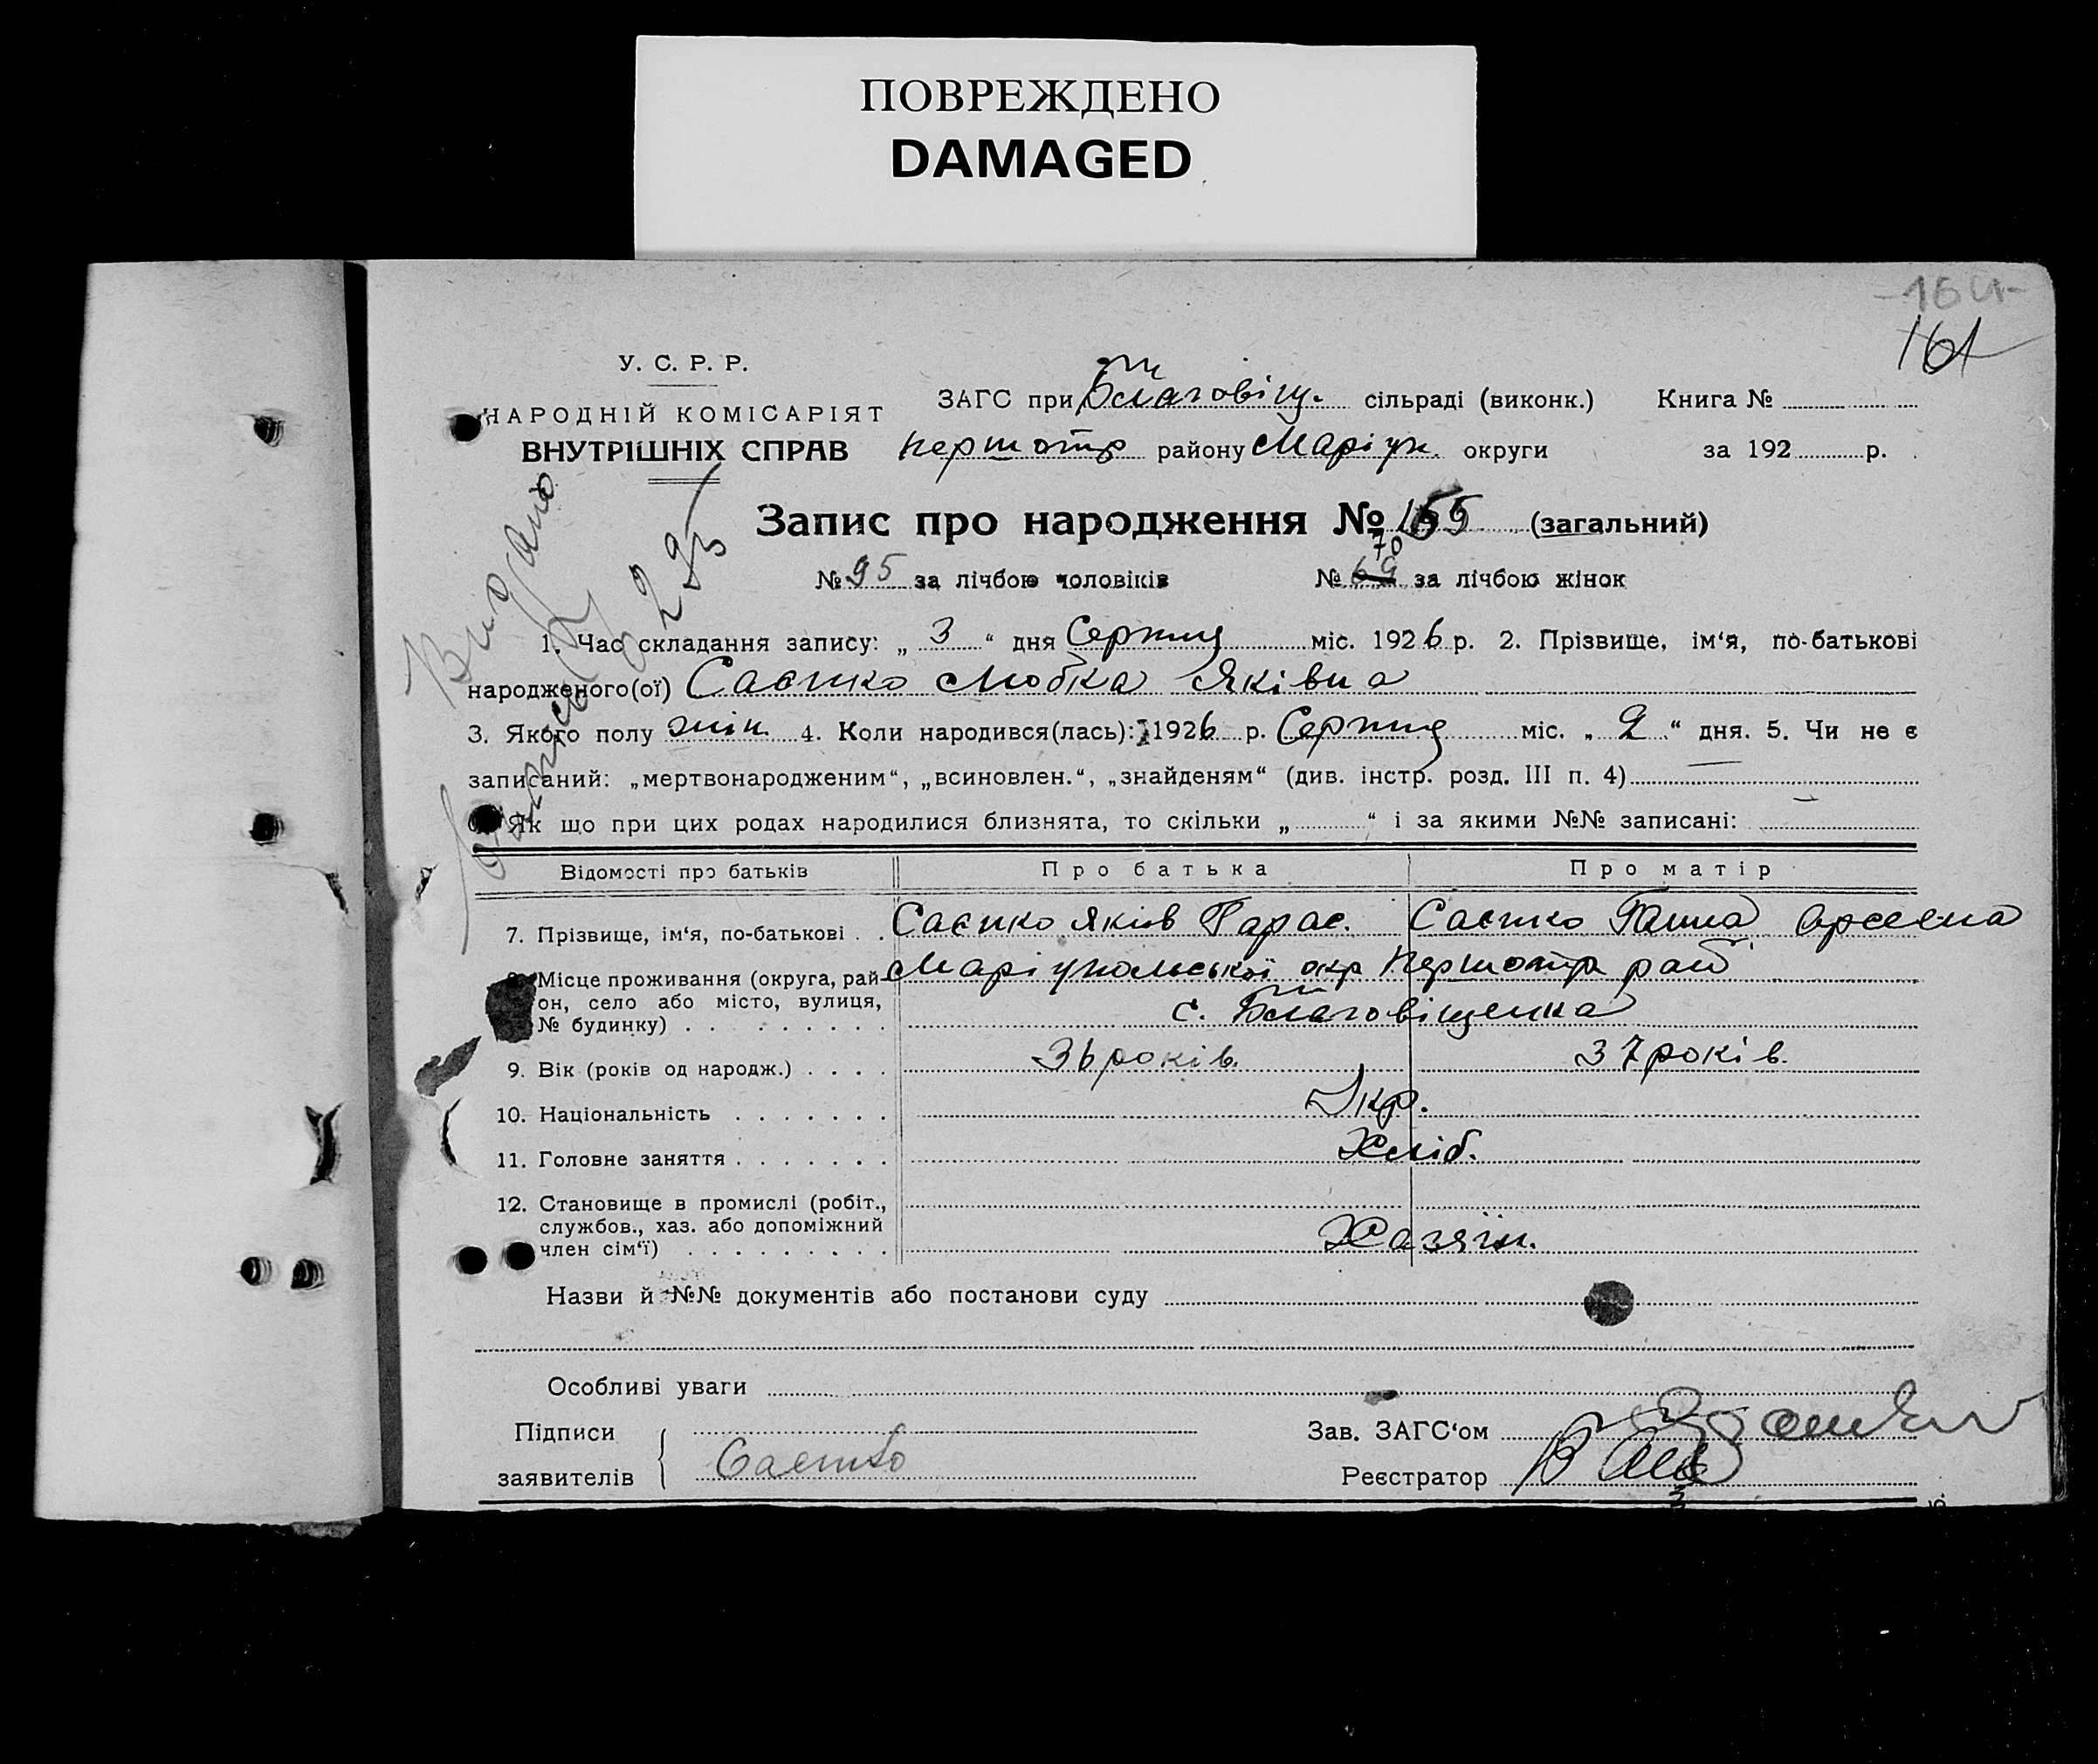 ПОВРЕЖДЕНО
DAMAGED
-164-
161
У. С. Р. Р.
НАРОДНІЙ КОМІСАРІЯТ
ВНУТРІШНІХ СПРАВ
ЗАГС при Благовіщ. сільраді (виконк.) Книга №
Першотр району Маріуп. округи за 192 р.
Запис про народження № 165 (загальний)
70
№ 95 за лічбою чоловіків № 69 за лічбою жінок
Видано
1. Час складання запису: „ 3 “ дня Серпня міс. 1926 р. 2. Прізвище, ім‘я, по-батькові
народженого(ої) Саєнко Любка Яківна
3. Якого полу жін. 4. Коли народився(лась): 1926 р. Серпня міс. „ 2 “ дня. 5. Чи не є
записаний: „мертвонародженим“, „всиновлен.“, „знайденям“ (див. інстр. розд. III п. 4) —
Як що при цих родах народилися близнята, то скільки „ “ і за якими №№ записані: —
Відомості про батьків Про батька Про матір
7. Прізвище, ім‘я, по-батькові . . Саєнко Яків Тарас. Саєнко Ганна Арсена
8. Місце проживання (округа, рай- Маріупольської окр Першотр рай
он, село або місто, вулиця,
№ будинку) . . . . . . . . . с. Благовіщенка
9. Вік (років од народж.) . . . . 36 років. 37 років.
10. Національність . . . . . . . Укр.
11. Головне заняття . . . . . . . Хліб.
12. Становище в промислі (робіт.,
службов., хаз. або допоміжний
член сім‘ї) . . . . . . . . . Хазяїн.
Назви й №№ документів або постанови суду
Особливі уваги
Підписи Зав. ЗАГС‘ом
заявителів Саєнко Реєстратор